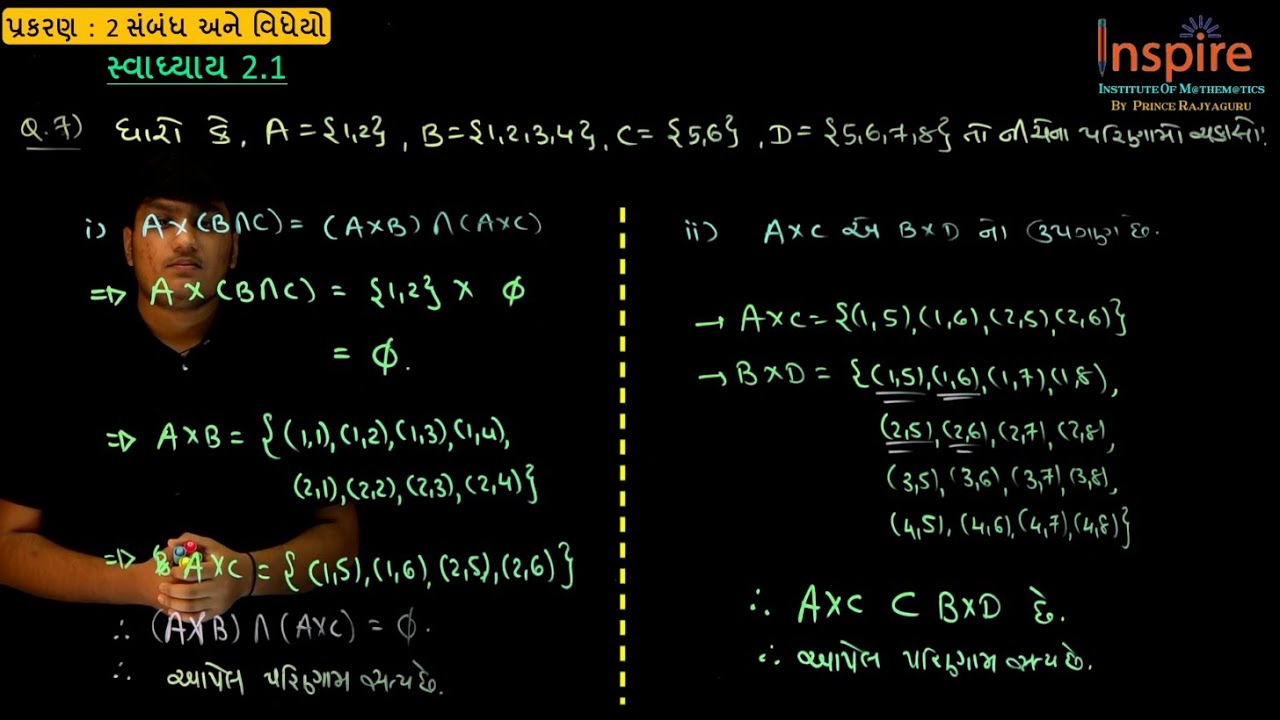 પ્રકરણ : 2 સંબંધ અને વિધેયો
સ્વાધ્યાય 2.1
Inspire
INSTITUTE OF M@THEM@TICS
BY PRINCE RAJYAGURU
Q.7) ધારો કે, A = {1,2}, B = {1,2,3,4}, C = {5,6}, D = {5,6,7,8} તો નીચેના પરિણામો ચકાસો!
i) A×(B∩C) = (A×B)∩(A×C)
⇒ A×(B∩C) = {1,2} × ϕ
= ϕ.
⇒ A×B = {(1,1),(1,2),(1,3),(1,4),
(2,1),(2,2),(2,3),(2,4)}
⇒ A×C = {(1,5),(1,6),(2,5),(2,6)}
∴ (A×B)∩(A×C) = ϕ.
∴ આપેલ પરિણામ સત્ય છે.
ii) A×C એ B×D નો ઉપગણ છે.
→ A×C = {(1,5),(1,6),(2,5),(2,6)}
→ B×D = {(1,5),(1,6),(1,7),(1,8),
(2,5),(2,6),(2,7),(2,8),
(3,5),(3,6),(3,7),(3,8),
(4,5),(4,6),(4,7),(4,8)}
∴ A×C ⊂ B×D છે.
∴ આપેલ પરિણામ સત્ય છે.